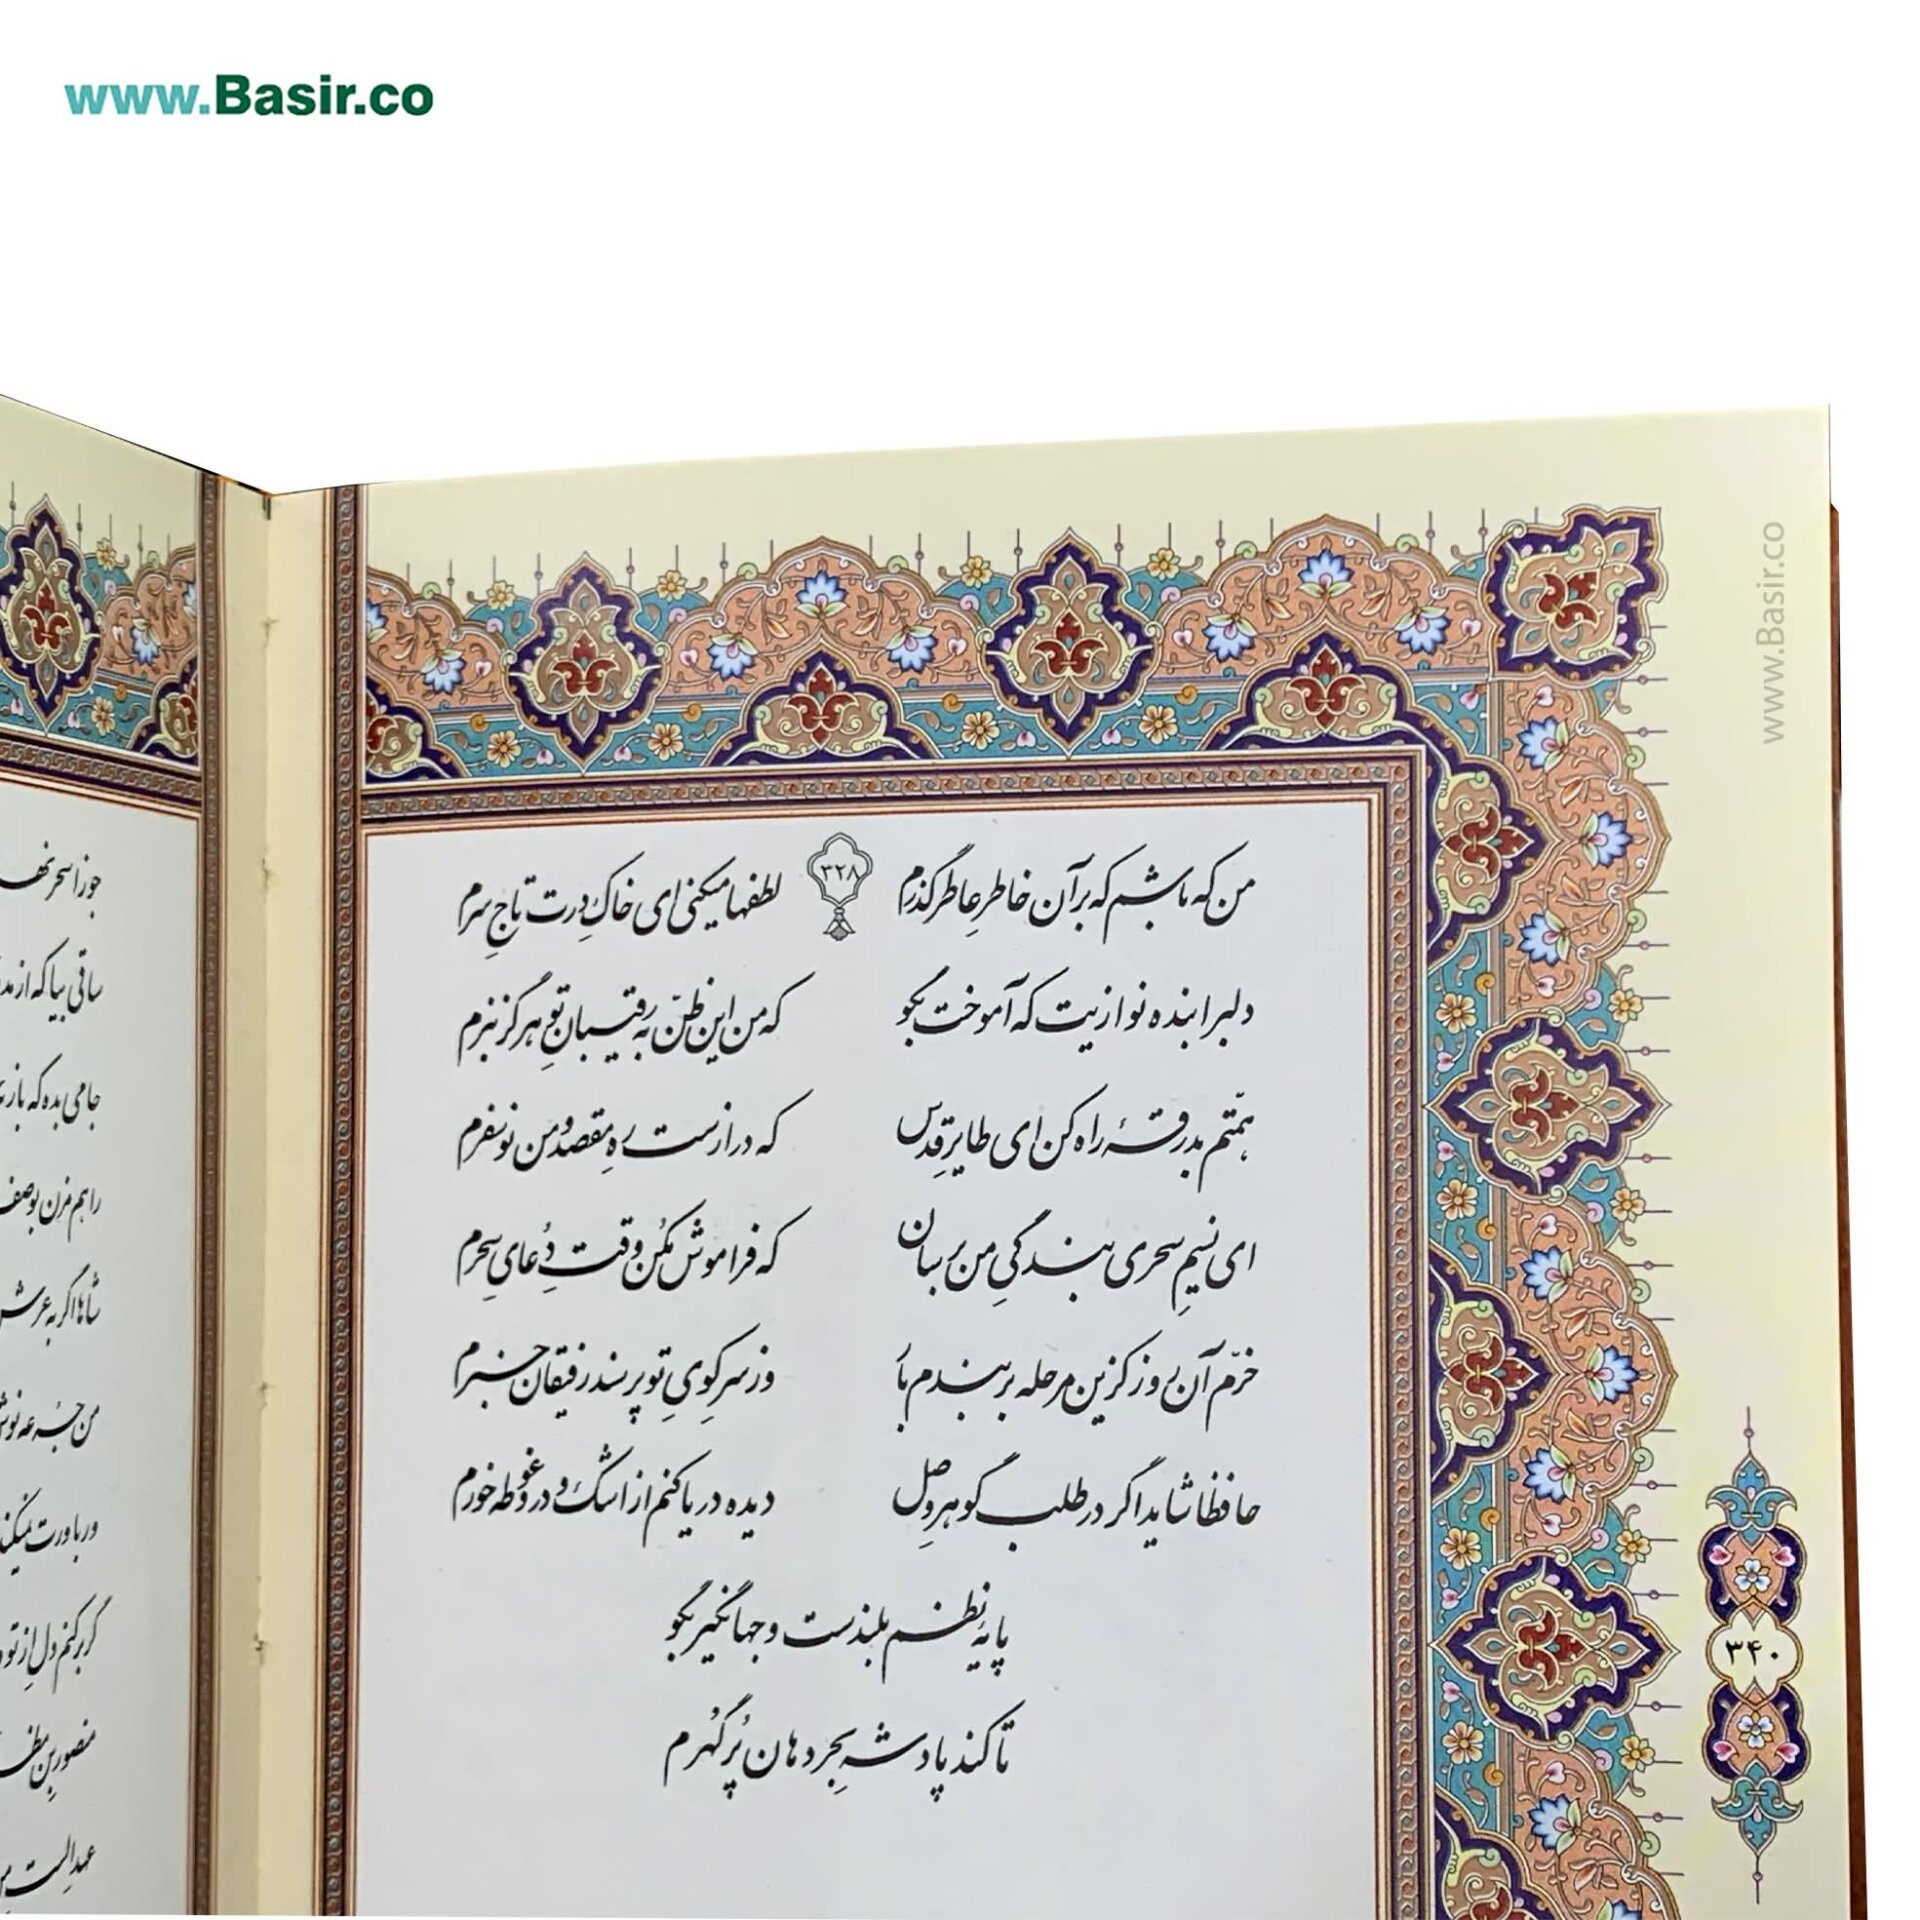 www.Basir.co
www.Basir.co
۳۲۸
من که باشم که بر آن خاطرِ عاطر گذرم لطفها میکنی ای خاکِ درت تاجِ سرم
دلبرا بنده نوازیت که آموخت بگو که من این ظنّ به رقیبانِ تو هرگز نبرم
همّتم بدرقهٔ راه کن ای طایرِ قدس که درازست رهِ مقصد و من نوسفرم
ای نسیمِ سحری بندگیِ من برسان که فراموش مکن وقتِ دُعایِ سحرم
خرّم آن روز کزین مرحله بربندم بار وز سرِ کویِ تو پرسند رفیقان خبرم
حافظا شاید اگر در طلبِ گوهرِ وصل دیده دریا کنم از اشک و درو غوطه خورم
پایهٔ نظم بلندست و جهانگیر بگو
تا کند پادشهِ بحر دهان پُر گُهرم
۳۴۰
جوزا سحر نها
ساقی بیا که از مد
جامی بده که باز
راهم مزن بوصف
شاها اگر به عرش
من جرعه نوش
ور باورت نمیکند
گر برکنم دل از تو
منصور بن مظ
عهدِ الست